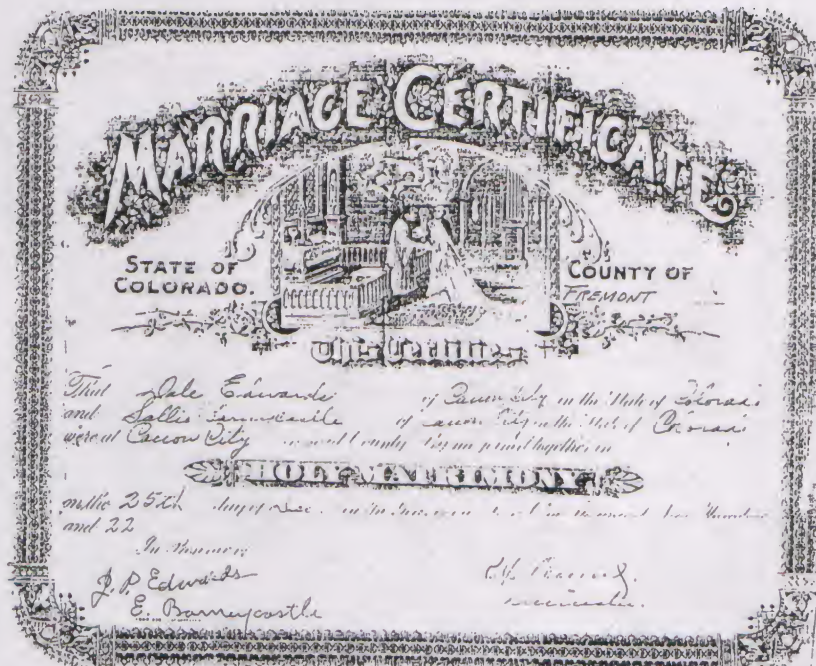 MARRIAGE CERTIFICATE
STATE OF COLORADO.
COUNTY OF FREMONT
This Certifies
That Dale Edwards of Canon City in the State of Colorado
and Sallie of Canon City in the State of Colorado
were at Canon City in said County by me joined together in
HOLY MATRIMONY
on the 25th day of Dec. in the
and 22
In Presence
J. P. Edwards
E. Barneycastle